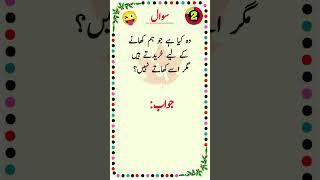 سوال
2
وہ کیا ہے جو ہم کھانے
کے لیے خریدتے ہیں
مگر اسے کھاتے نہیں؟
جواب: